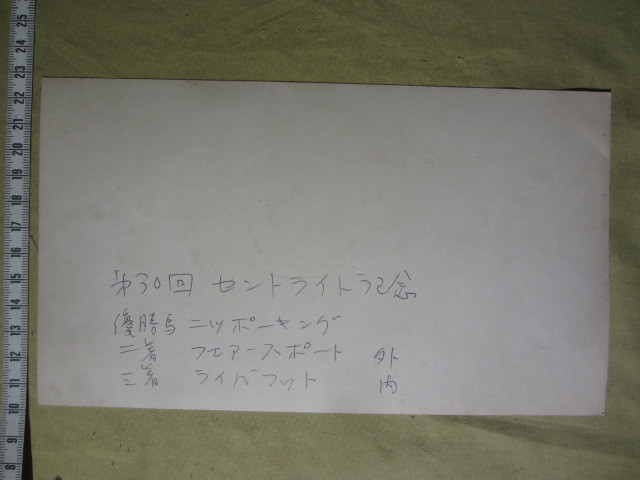 第30回 セントライト記念
優勝馬 ニッポーキング
二着 フエアースポート 外
三着 ライバフット 内
25
24
23
22
21
20
19
18
17
16
15
14
13
12
11
10
9
8